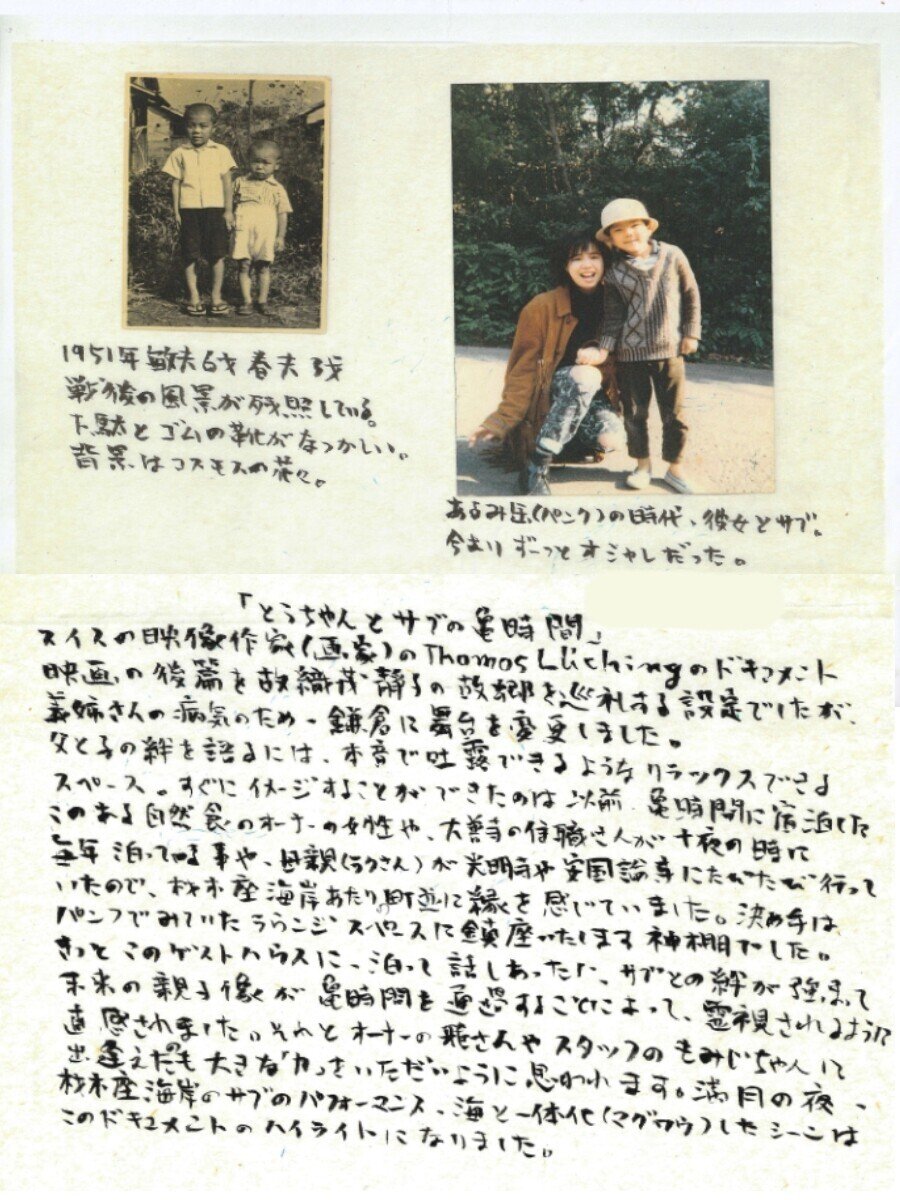 1951年 敏夫6才 春夫3才
戦後の風景が残照している。
下駄とゴムの靴がなつかしい。
背景はコスモスの花々。
あるみ缶(パンク)の時代、彼女とサブ。
今よりずーっとオシャレだった。
「とうちゃんとサブの亀時間」
スイスの映像作家(画家)のThomas Lüchingのドキュメント
映画の後篇を故織茂静子の故郷を巡礼する設定でしたが、
義姉さんの病気のため、鎌倉に舞台を変更しました。
父と子の絆を語るには、本音で吐露できるようなリラックスできる
スペース。すぐにイメージすることができたのは以前、亀時間に宿泊した
ことのある自然食のオーナーの女性や、大善寺の住職さんが十夜の時に
毎年泊っている事や、母親(ラクさん)が光明寺や安国論寺にたびたび行って
いたので、材木座海岸あたりの町並に縁を感じていました。決め手は
パンフでみていたラウンジスペースに鎮座いたします神棚でした。
きっとこのゲストハウスに一泊って話しあったら、サブとの絆が強まって
未来の親子像が亀時間を通過することによって、霊視されるように
直感されました。それとオーナーの さんやスタッフのもみじちゃんに
出逢えたのも大きな「力」をいただいように思われます。満月の夜、
材木座海岸のサブのパフォーマンス、海と一体化(マグワウ)したシーンは
このドキュメントのハイライトになりました。